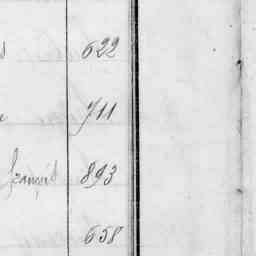 622
711
François 893
658